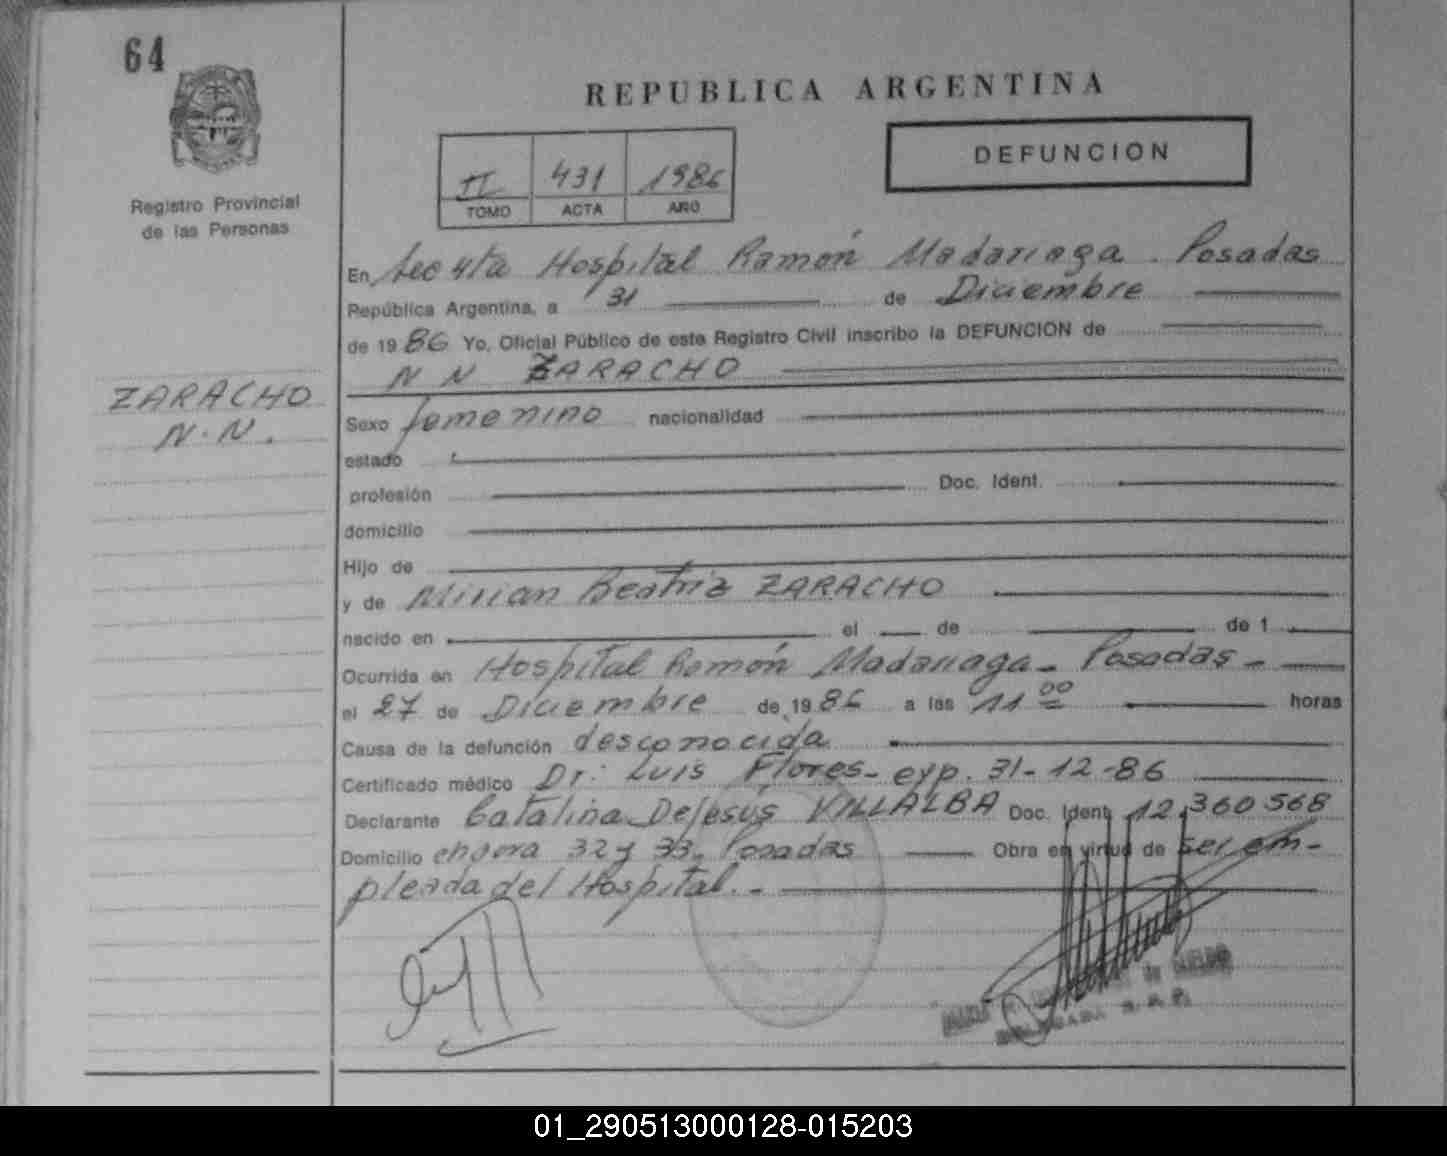 64
REPUBLICA ARGENTINA
DEFUNCION
II 431 1986
TOMO ACTA AÑO
Registro Provincial
de las Personas
En Sec 4ta Hospital Ramón Madariaga. Posadas
República Argentina, a 31 de Diciembre
de 1986 Yo, Oficial Público de este Registro Civil inscribo la DEFUNCION de
N N ZARACHO
ZARACHO
N.N.
Sexo femenino nacionalidad
estado
profesión Doc. Ident.
domicilio
Hijo de
y de Mirian Beatriz ZARACHO
nacido en el de de 1
Ocurrida en Hospital Ramón Madariaga - Posadas -
el 27 de Diciembre de 1986 a las 11 00 horas
Causa de la defunción desconocida
Certificado médico Dr: Luis Flores - exp. 31-12-86
Declarante Catalina DeJesús VILLALBA Doc. Ident. 12.360568
Domicilio chacra 32 y 33. Posadas Obra en virtud de ser em-
pleada del Hospital. -
01_290513000128-015203